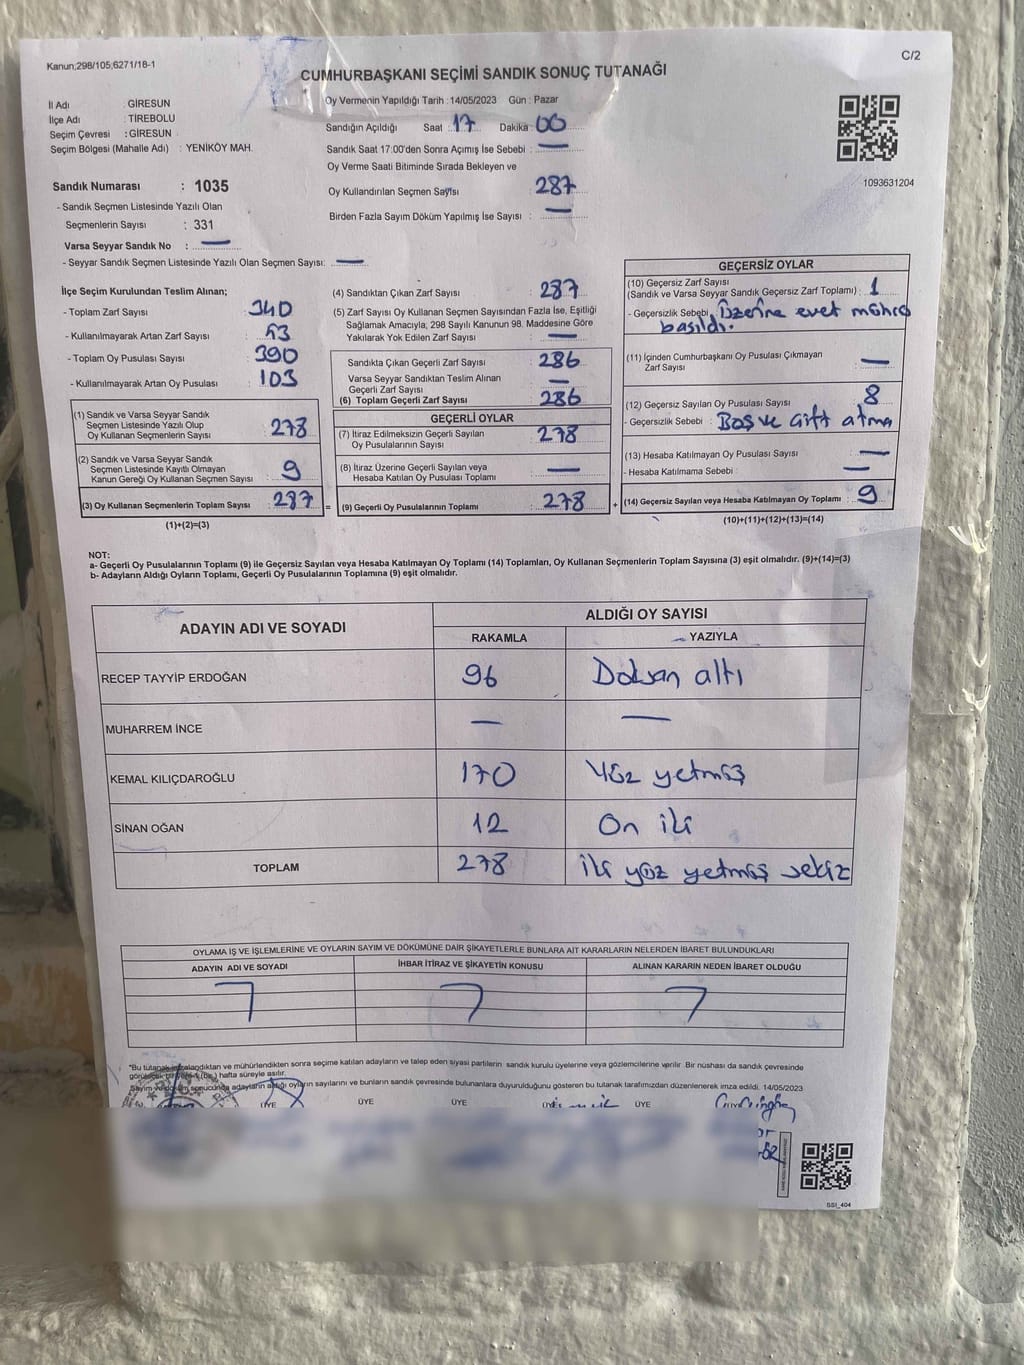 Kanun;298/105;6271/18-1
C/2
CUMHURBAŞKANI SEÇİMİ SANDIK SONUÇ TUTANAĞI
İl Adı : GİRESUN
İlçe Adı : TİREBOLU
Seçim Çevresi : GİRESUN
Seçim Bölgesi (Mahalle Adı) : YENİKÖY MAH.
Sandık Numarası : 1035
- Sandık Seçmen Listesinde Yazılı Olan
Seçmenlerin Sayısı : 331
Varsa Seyyar Sandık No : —
- Seyyar Sandık Seçmen Listesinde Yazılı Olan Seçmen Sayısı: —
Oy Vermenin Yapıldığı Tarih : 14/05/2023 Gün : Pazar
Sandığın Açıldığı Saat : 17 Dakika : 00
Sandık Saat 17:00'den Sonra Açımış İse Sebebi : —
Oy Verme Saati Bitiminde Sırada Bekleyen ve
Oy Kullandırılan Seçmen Sayısı : 287
Birden Fazla Sayım Döküm Yapılmış İse Sayısı : —
1093631204
İlçe Seçim Kurulundan Teslim Alınan;
- Toplam Zarf Sayısı : 340
- Kullanılmayarak Artan Zarf Sayısı : 53
- Toplam Oy Pusulası Sayısı : 390
- Kullanılmayarak Artan Oy Pusulası : 103
(1) Sandık ve Varsa Seyyar Sandık
Seçmen Listesinde Yazılı Olup
Oy Kullanan Seçmenlerin Sayısı : 278
(2) Sandık ve Varsa Seyyar Sandık
Seçmen Listesinde Kayıtlı Olmayan
Kanun Gereği Oy Kullanan Seçmen Sayısı : 9
(3) Oy Kullanan Seçmenlerin Toplam Sayısı : 287
(1)+(2)=(3)
(4) Sandıktan Çıkan Zarf Sayısı : 287
(5) Zarf Sayısı Oy Kullanan Seçmen Sayısından Fazla İse, Eşitliği
Sağlamak Amacıyla, 298 Sayılı Kanunun 98. Maddesine Göre
Yakılarak Yok Edilen Zarf Sayısı : —
Sandıkta Çıkan Geçerli Zarf Sayısı : 286
Varsa Seyyar Sandıktan Teslim Alınan
Geçerli Zarf Sayısı : —
(6) Toplam Geçerli Zarf Sayısı : 286
GEÇERLİ OYLAR
(7) İtiraz Edilmeksizin Geçerli Sayılan
Oy Pusulalarının Sayısı : 278
(8) İtiraz Üzerine Geçerli Sayılan veya
Hesaba Katılan Oy Pusulası Toplamı : —
= (9) Geçerli Oy Pusulalarının Toplamı : 278
GEÇERSİZ OYLAR
(10) Geçersiz Zarf Sayısı
(Sandık ve Varsa Seyyar Sandık Geçersiz Zarf Toplamı) : 1
- Geçersizlik Sebebi : Üzerine evet mührü
basıldı.
(11) İçinden Cumhurbaşkanı Oy Pusulası Çıkmayan
Zarf Sayısı : —
(12) Geçersiz Sayılan Oy Pusulası Sayısı : 8
- Geçersizlik Sebebi : Boş ve Çift atma
(13) Hesaba Katılmayan Oy Pusulası Sayısı : —
- Hesaba Katılmama Sebebi : —
+ (14) Geçersiz Sayılan veya Hesaba Katılmayan Oy Toplamı : 9
(10)+(11)+(12)+(13)=(14)
NOT:
a- Geçerli Oy Pusulalarının Toplamı (9) ile Geçersiz Sayılan veya Hesaba Katılmayan Oy Toplamı (14) Toplamları, Oy Kullanan Seçmenlerin Toplam Sayısına (3) eşit olmalıdır. (9)+(14)=(3)
b- Adayların Aldığı Oyların Toplamı, Geçerli Oy Pusulalarının Toplamına (9) eşit olmalıdır.
ADAYIN ADI VE SOYADI
ALDIĞI OY SAYISI
RAKAMLA YAZIYLA
RECEP TAYYİP ERDOĞAN 96 Doksan altı
MUHARREM İNCE — —
KEMAL KILIÇDAROĞLU 170 Yüz yetmiş
SİNAN OĞAN 12 On iki
TOPLAM 278 iki yüz yetmiş sekiz
OYLAMA İŞ VE İŞLEMLERİNE VE OYLARIN SAYIM VE DÖKÜMÜNE DAİR ŞİKAYETLERLE BUNLARA AİT KARARLARIN NELERDEN İBARET BULUNDUKLARI
ADAYIN ADI VE SOYADI İHBAR İTİRAZ VE ŞİKAYETİN KONUSU ALINAN KARARIN NEDEN İBARET OLDUĞU
*Bu tutanak imzalandıktan ve mühürlendikten sonra seçime katılan adayların ve talep eden siyasi partilerin sandık kurulu üyelerine veya gözlemcilerine verilir. Bir nüshası da sandık çevresinde
görülecek bir yere (bir) hafta süreyle asılır.
Sayım ve döküm sonucunda adayların aldığı oyların sayılarını ve bunların sandık çevresinde bulunanlara duyurulduğunu gösteren bu tutanak tarafımızdan düzenlenerek imza edildi. 14/05/2023
ÜYE ÜYE ÜYE ÜYE ÜYE
SSI_404